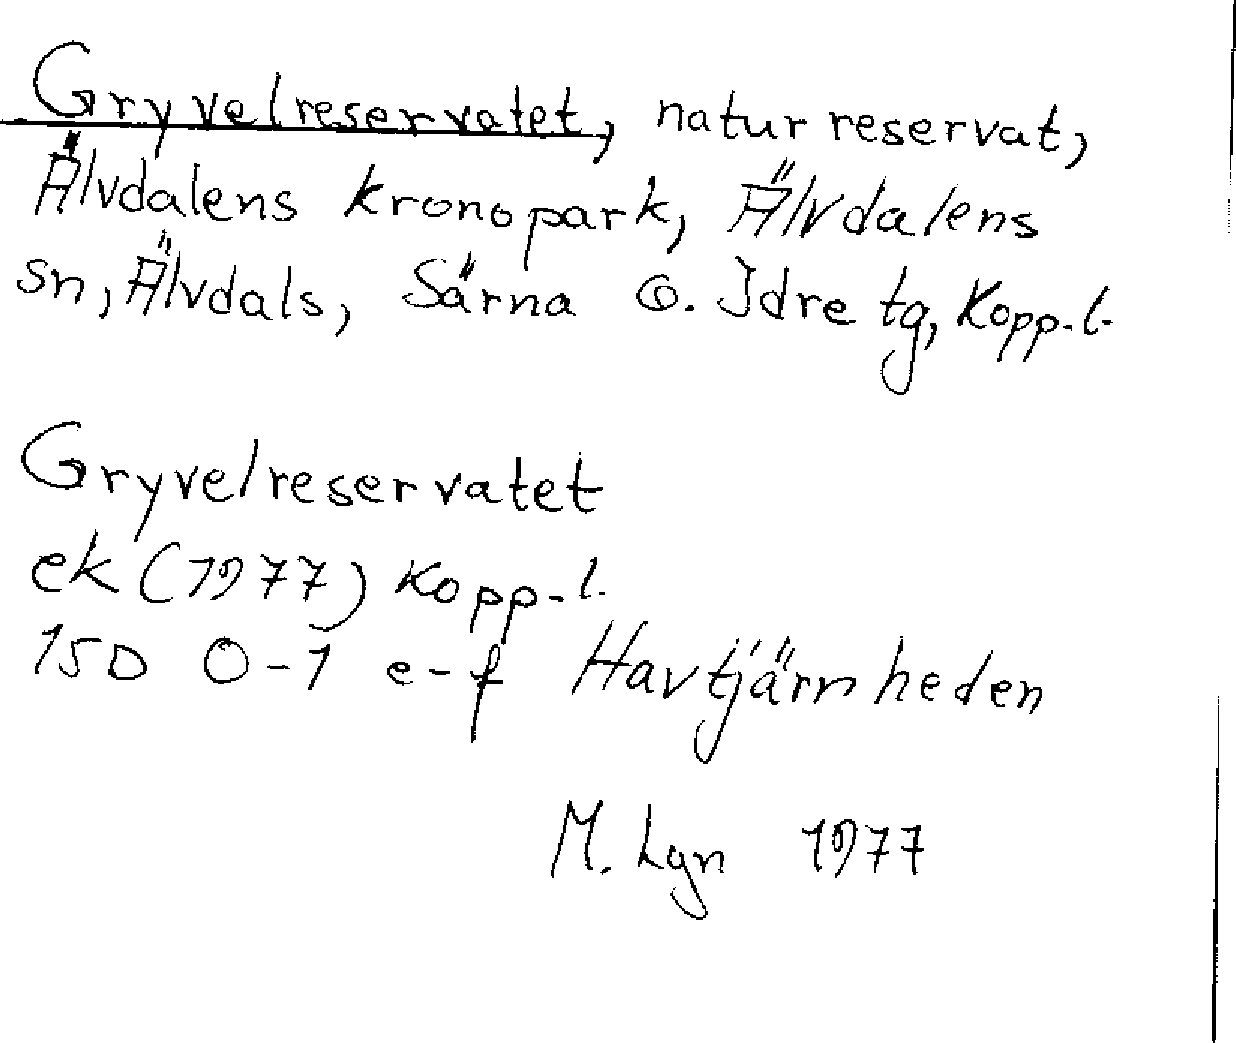 Gryvelreservatet, naturreservat,
Älvdalens kronopark, Älvdalens
sn, Älvdals, Särna o. Idre tg, Kopp. l.
Gryvelreservatet
ek (1977) Kopp. l.
15D 0-1 e-f Havtjärnheden
M. Lgn 1977